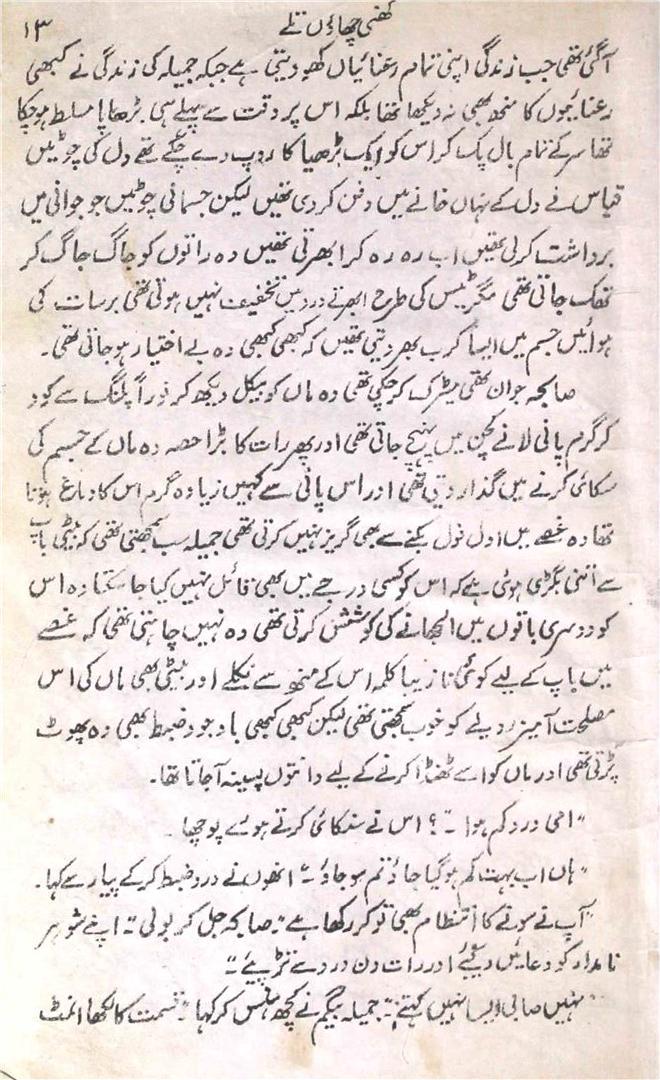 گھنی چھاؤں تلے ۱۳
آگئی تھی جب زندگی اپنی تمام رعنائیاں کھو دیتی ہے جبکہ جمیلہ کی زندگی نے کبھی
رعنائیوں کا منھ بھی نہ دیکھا تھا بلکہ اس پر وقت سے پہلے ہی بڑھاپا مسلط ہو چکا
تھا سر کے تمام بال پک کر اس کو ایک بڑھیا کا روپ دے چکے تھے دل کی چوٹیں
تو اس نے دل کے نہاں خانے میں دفن کر دی تھیں لیکن جسمانی چوٹیں جو جوانی میں
برداشت کرلی تھیں اب رہ رہ کر ابھرتی تھیں وہ راتوں کو جاگ جاگ کر
تھک جاتی تھی مگر ٹیس کی طرح ابھرتے درد میں تخفیف نہیں ہوتی تھی برسات کی
ہوائیں جسم میں ایسا کرب بھر دیتی تھیں کہ کبھی کبھی وہ بے اختیار ہو جاتی تھی۔
صابحہ جوان تھی میٹرک کر چکی تھی وہ ماں کو بیکل دیکھ کر فوراً پلنگ سے کود
کر گرم پانی لانے کچن میں پہنچ جاتی تھی اور پھر رات کا بڑا حصہ وہ ماں کے جسم کی
سکائی کرنے میں گذار دیتی تھی اور اس پانی سے کہیں زیادہ گرم اس کا دماغ ہوتا
تھا وہ غصے میں اول فول بکنے سے بھی گریز نہیں کرتی تھی جمیلہ سب سمجھتی تھی کہ بیٹی باپ
سے اتنی بگڑی ہوئی ہے کہ اس کو کسی درجے میں بھی قائل نہیں کیا جا سکتا وہ اس
کو دوسری باتوں میں الجھانے کی کوشش کرتی تھی وہ نہیں چاہتی تھی کہ غصے
میں باپ کے لیے کوئی نازیبا کلمہ اس کے منھ سے نکلے اور بیٹی بھی ماں کی اس
مصلحت آمیز رویے کو خوب سمجھتی تھی لیکن کبھی کبھی باوجود ضبط بھی وہ پھوٹ
پڑتی تھی اور ماں کو اسے ٹھنڈا کرنے کے لیے دانتوں پسینہ آجاتا تھا۔
"امی درد کم ہوا ۔"؟ اس نے سنکائی کرتے ہوئے پوچھا۔
"ہاں اب بہت کم ہو گیا جاؤ تم سو جاؤ۔" انھوں نے درد ضبط کر کے پیار سے کہا۔
"آپ نے سونے کا انتظام بھی تو کر رکھا ہے" صابحہ جل کر بولی "اپنے شوہر
نامدار کو دعائیں دیجئے اور رات دن درد سے تڑپیئے"
"نہیں صابی ایسا نہیں کہتے" جمیلہ بیگم نے کچھ ہنس کر کہا "قسمت کا لکھا انمٹ